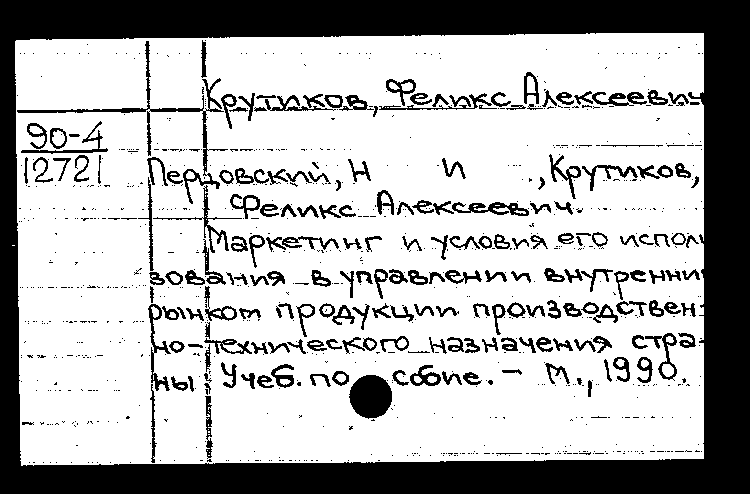 Крутиков, Феликс Алексеевич
90-4
12721
Перцовский, Н И ., Крутиков,
Феликс Алексеевич.
Маркетинг и условия его исполь
зования в управлении внутренни
рынком продукции производствен-
но-технического назначения стра-
ны. Учеб. пособие. - М., 1990.